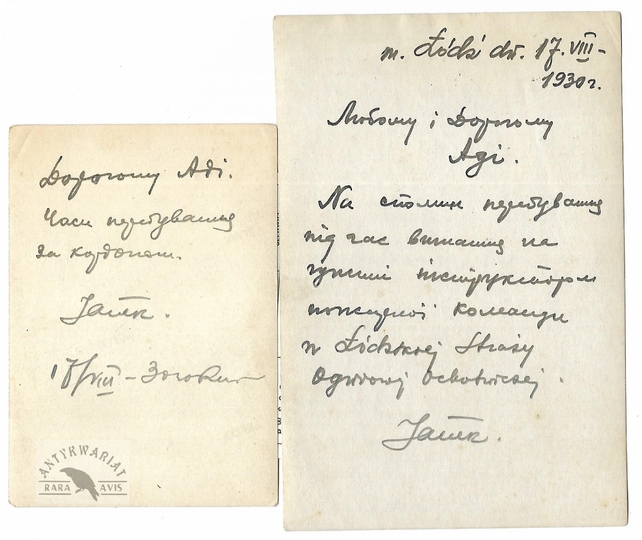 Дорогому Аді.
Часи перебування
за кордоном.
Janek.
17/VIII – 30 року
ANTYKWARIAT
RARA AVIS
m. Łódź dn. 17.VIII –
1930 r.
Любому і Дорогому
Аді.
На спомин перебування
під час навчання на
інструктором
пожарної команди
w Łódzkiej Straży
Ogniowej Ochotniczej.
Janek.